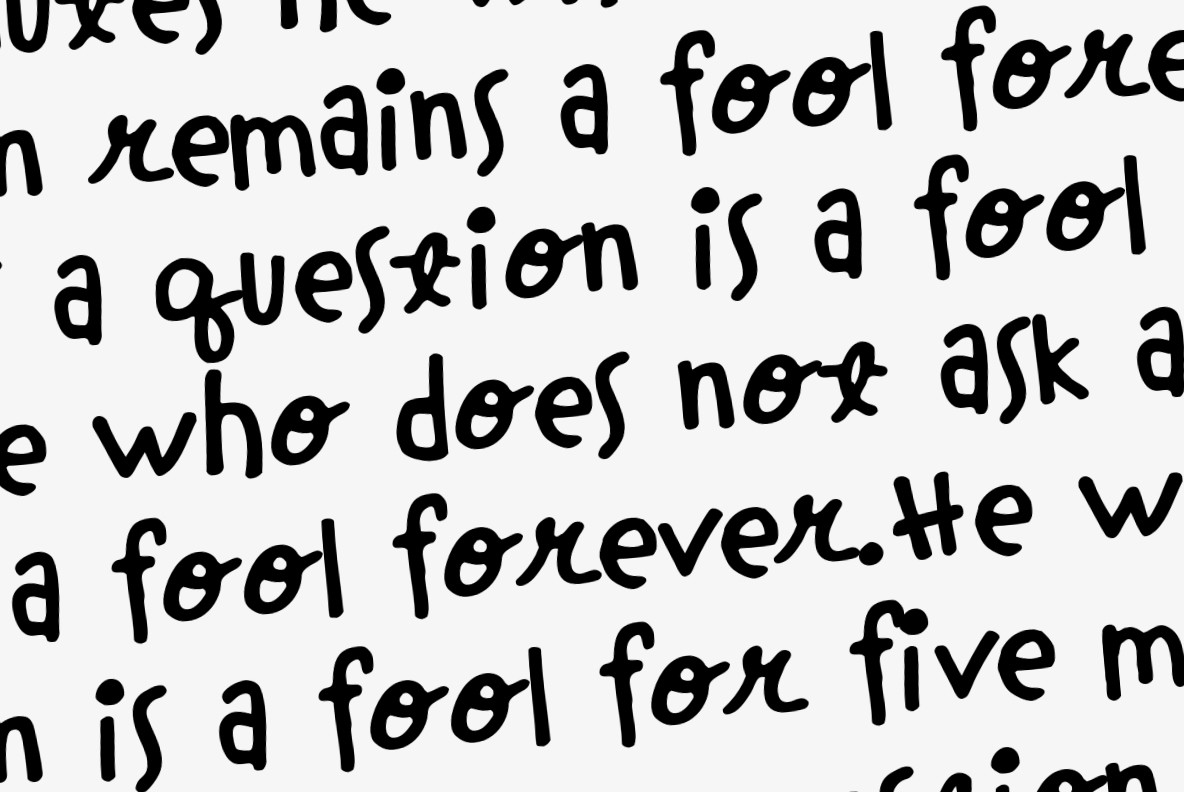 He
remains a fool
a question is a fool
who does not ask a
a fool forever.He
is a fool for five